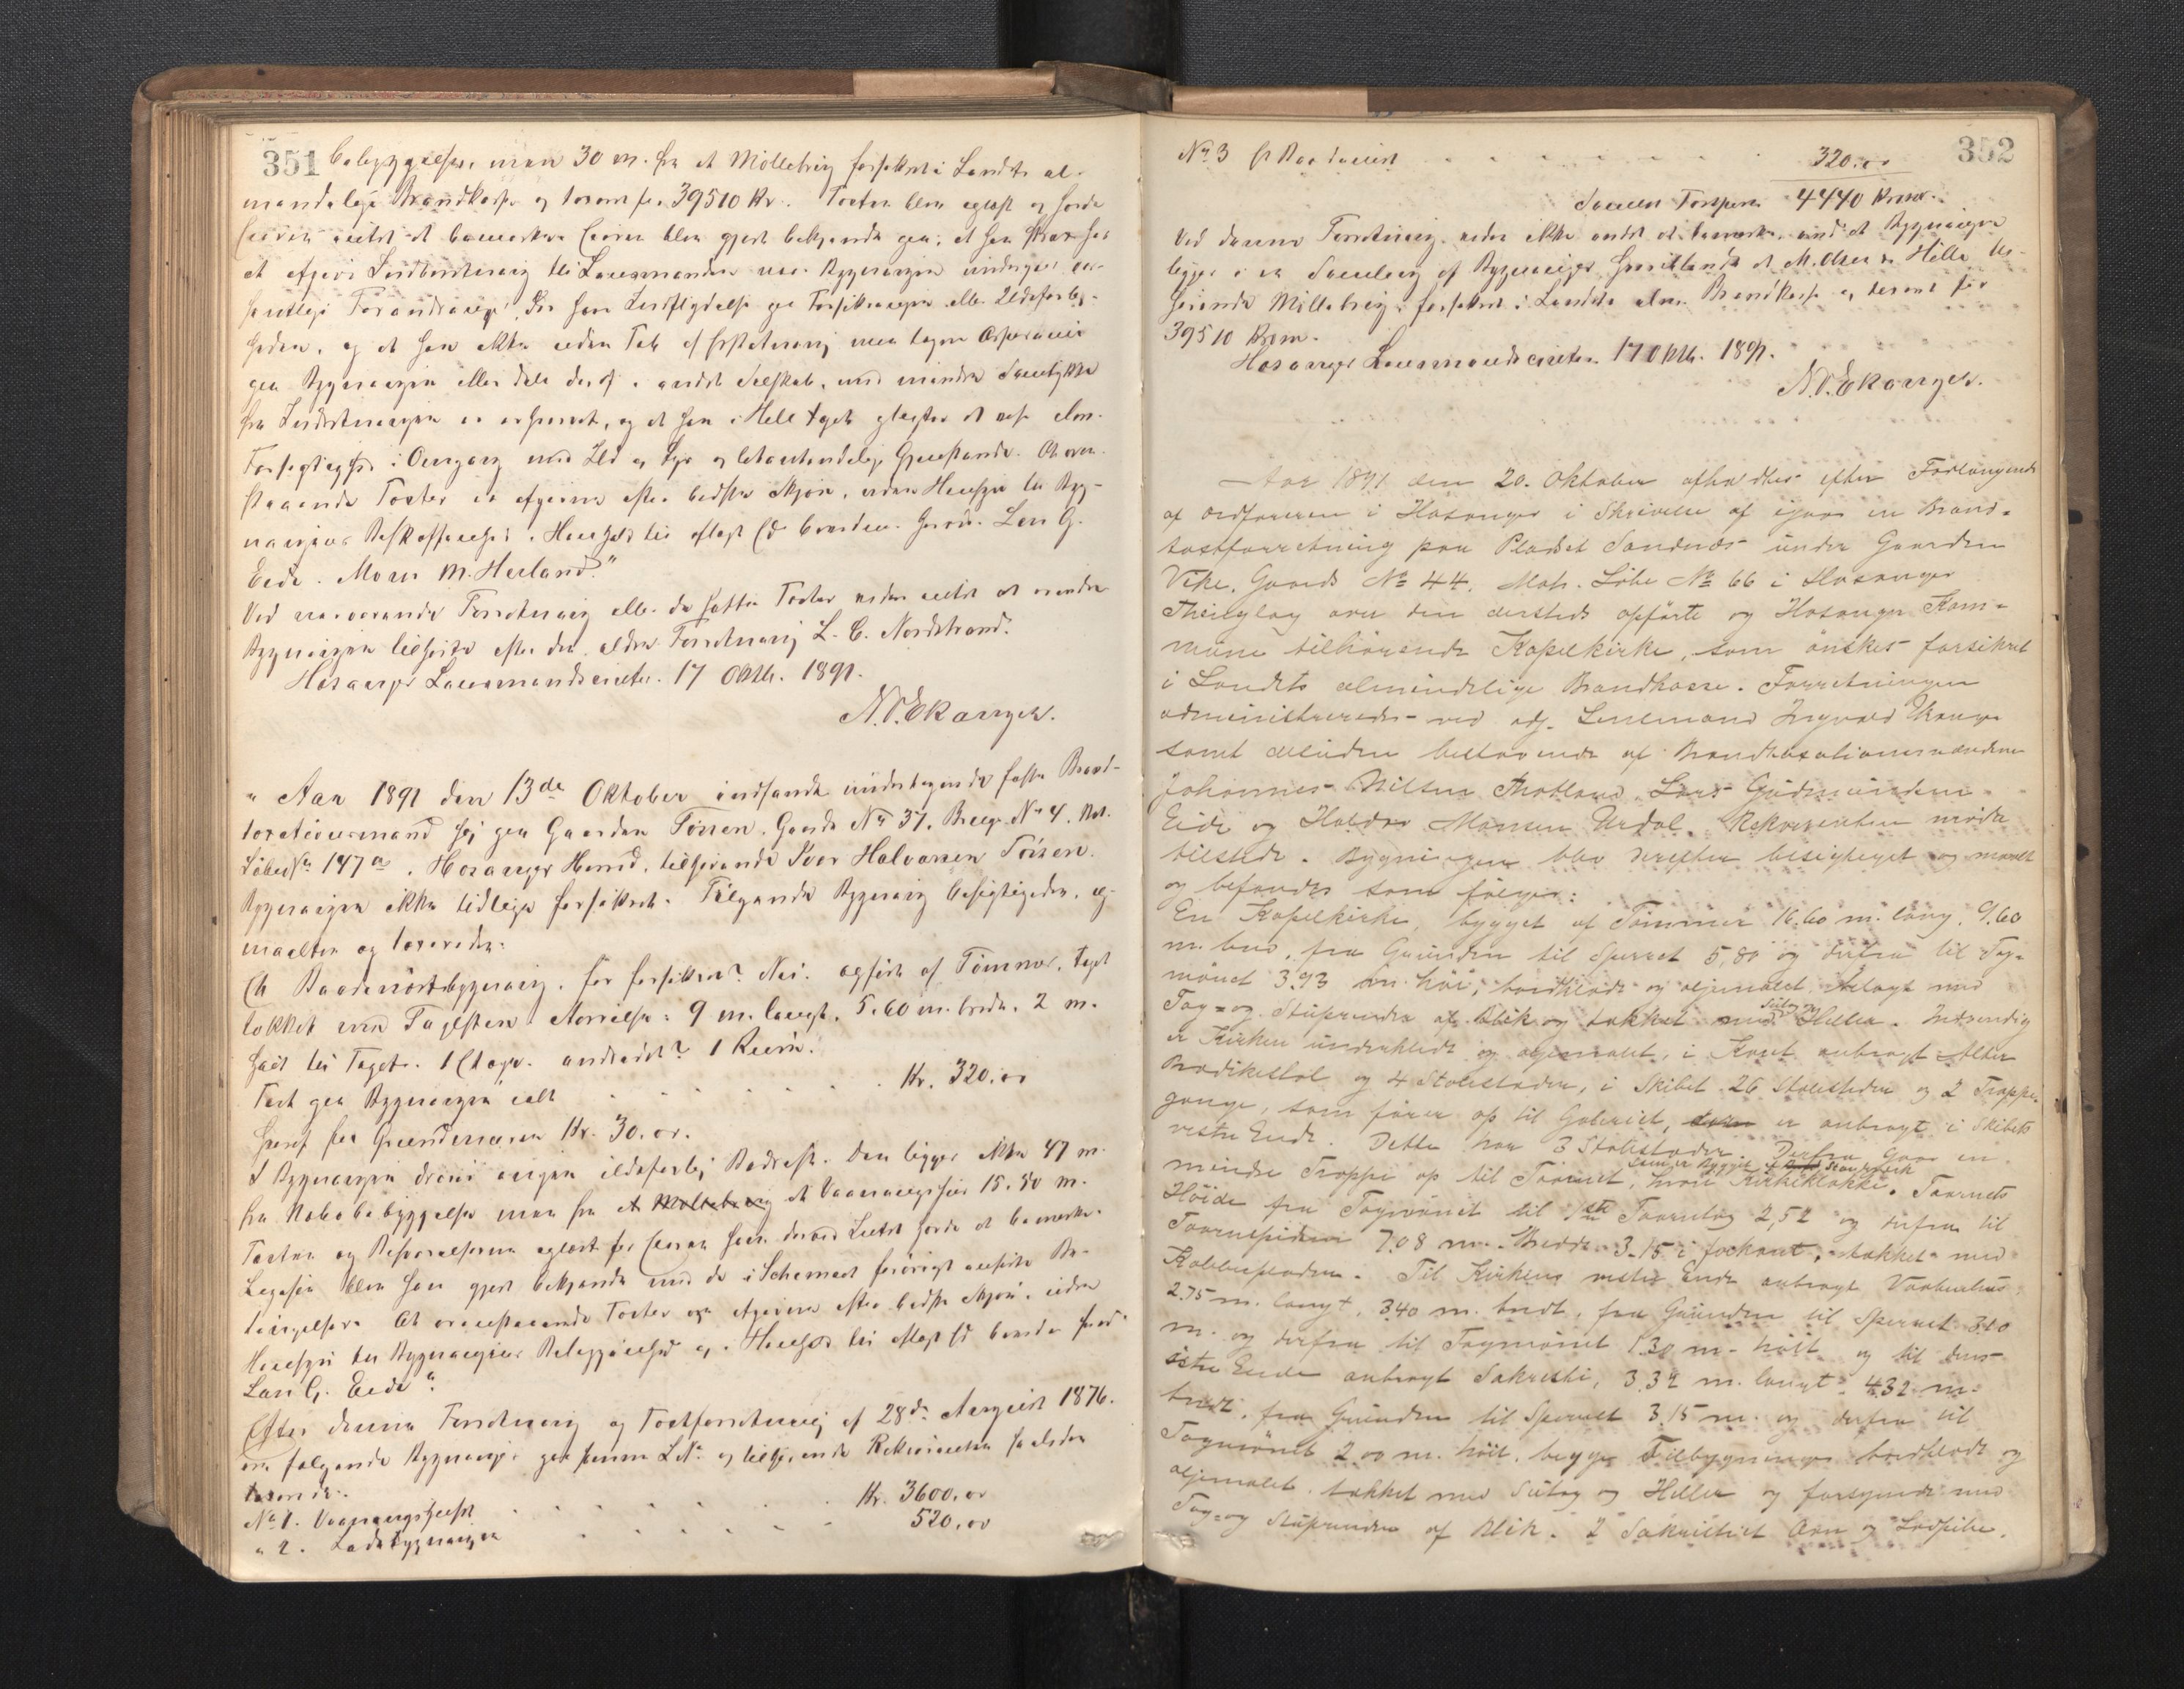 351
bebyggelse, men 30 m. fra et Möllebrug forsikret i Landets al-
mindelige Brandkasse og taxeret for 39510 Kr. Taxten blev oplæst og havde
Eieren intet at bemærke. Eieren blev gjort bekjendt paa, at han strax har
at afgive Indberetning til Lensmanden naar Bygningen undergaar væ-
sentlige Forandringer, der har Indflydelse paa Forsikringen eller Ildsfarlig-
heden, og at han ikke uden Tab af Erstatning maa tegne Assurance
paa Bygningen eller Dele deraf i andet Selskab, med mindre Samtykke
fra Indretningen er erhvervet, og at han i Helt taget pligter at vise alm.
Forsigtighed i Omgang med Ild og Lys og letantændelige Gjenstande. At oven-
staaende Taxter er afgivne efter bedste Skjön, uden Hensyn til Byg-
ningens Beskaffenhed i Henhold til aflagt Ed bevidnes. Lars G.
Eide. Mons M. Herland."
Ved nærværende Forretning eller de satte Taxter vides intet at erindre
Bygningen tilhørte efter den ældre Forretning L. C. Nordstrand.
Hosanger Lensmandscontor. 17 Oktbr. 1891.
N. O. Ekanger.
" Aar 1891 den 13de Oktober indfandt undertegnede faste Brand-
taxationsmænd sig paa Gaarden Tössen, Gaards No 37, Brugs No 4, Mat.
Löbe No 147 a, i Hosanger Herred, tilhørende Ivar Halvorsen Tössen.
Bygningen ikke tidligere forsikret. Fölgende Bygning besigtigedes, op-
maaltes og taxeredes:
Et Baadenöstbygning, för forsikret? Nei. opfört af Tömmer, Taget
tækket med Tagsten. Størrelse: 9 m. langt, 5.60 m. bredt, 2 m.
höit til Taget. 1 Etage. andradet? 1 Rum.
Taxt paa Bygningen ialt . . . . . . . Kr. 320.00
Heraf for Grundmuren Kr. 30.00.
I Bygningen drives ingen ildsfarlig Bedrift. Den ligger ikke 47 m.
fra Nabobebyggelse men fra et Möllebrug et Vaaningshus 15.50 m.
Taxten og Beskrivelsen oplæst for Eieren som derved Intet havde at bemærke.
Ligesaa blev han gjort bekjendt med de i Schemaet forövrigt anförte Be-
tingelser. At ovenstaaende Taxter er afgivne efter bedste Skjön, uden
Hensyn til Bygningens Beliggenhed og i Henhold til aflagt Ed bevidnes
Lars G. Eide".
Efter denne Forretning og Taxtforretning af 28de August 1876.
ere fölgende Bygninger paa samme L.No og tilhørende Rekvirenten saaledes
taxerede:
No 1. Vaaningshuset . . . . . . . Kr. 3600.00
" 2. Ladebygningen . . . . . . . 520.00
352
No 3 et Baadenöst . . . . . . . 320.00
Samlet Taxtsum 4440 Kroner.
Ved denne Forretning vides ikke andet at bemærke, end at Bygningen
ligger i en Samling af Bygninger, heriblandt et M. Olsen Hella til-
hørende Möllebrug, forsikret i Landets alm. Brandkasse og taxeret for
39510 Kroner.
Hosanger Lensmandscontor. 17 Oktbr. 1891.
N. O. Ekanger.
Aar 1891 den 20. Oktober afholdtes efter Forlangende
af Ordføreren i Hosanger i Skrivelse af igaar en Brand-
taxtforretning paa Pladset Sandnes under Gaarden
Vike, Gaards No 44, Matr. Löbe No 66 i Hosanger
Thinglag over den dersteds opförte og Hosanger Kom-
mune tilhörende Kapelkirke, som önskes forsikret
i Landets almindelige Brandkasse. Forretningen
administreredes ved adj. Lensmand Ingvald Ekanger
samt desuden bestaaende af Brandtaxationsmændene
Johannes Nilsen Thotland, Lars Gudmundsen
Eide og Haldor Monsen Urdal. Rekvirenten mødte
tilstede. Bygningen blev derefter besigtiget og maalt
og befandtes som fölger:
En Kapelkirke, bygget af Tömmer 16.60 m. lang, 9.60
m. bred, fra Grunden til Sperret 5,80 og derfra til Tag-
mönet 3.93 m. höi, bordklædt og oljemalet, belagt med
Tag- og Stuprender af Blik og tækket med Sutag og Heller. Indvendig
er Kirken underklædt og oljemalet, i Koret anbragt Alter
Prædikestol og 4 Stolestader, i Skibet 26 Stolestader og 2 Trappe-
gange, som fører op til Galleriet, som er anbragt i Skibets
vestre Ende. Dette har 3 Stolestader. Derfra gaar en
mindre Trappe op til Taarnet, som er bygget af Stavværk hvori Kirkeklokke. Taarnets
Höide fra Tagmönet til 1ste Taarntag 2,52 og derfra til
Taarnspidsen 7.08 m. Bredde 3.15 i firkant, tækket med
Kobberplader. Til Kirkens vestre Ende anbragt Vaabenhus
2.75 m. langt, 3.40 m. bredt, fra Grunden til Sperret 3.10
m. og derfra til Tagmönet 1.30 m. höit og til dens
östre Ende anbragt Sakresti, 3.32 m. langt, 4.32 m.
bredt, fra Grunden til Sperret 3.15 m. og derfra til
Tagmönet 2.00 m. höit, begge Tilbygninger bordklædt og
oljemalet, tækket med Sutag og Heller og forsynede med
Tag- og Stuprender af Blik. I Sakristiet Ovn og Lodpibe.